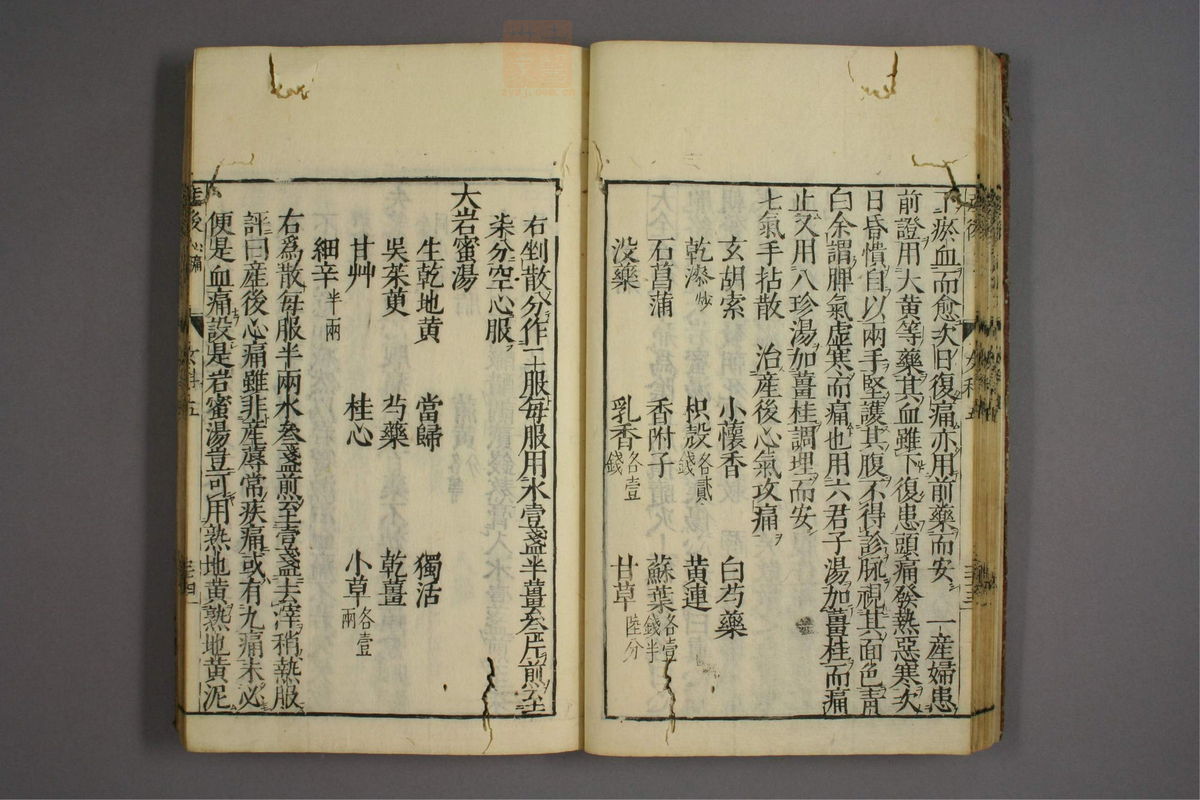 下瘀血而愈次日復痛亦用前藥而安 一産婦患
前證用大黄等藥其血雖下復患頭痛發熱惡寒次
日昏憒自以兩手堅護其腹不得診脈視其面色青
白余謂脾氣虚寒而痛也用六君子湯加薑桂而痛
止又用八珍湯加薑桂調理而安
七氣手拈散 治産後心氣攻痛
玄胡索 小懷香 白芍藥
乾漆炒 枳殼各貳錢 黄連
石菖蒲 香附子 蘇葉各壹錢半
没藥 乳香各壹錢 甘草陸分
右剉散分作二服每服用水壹盞半薑叁片煎至
柒分空心服
大岩蜜湯
生乾地黄 當歸 獨活
吳茱萸 芍藥 乾薑
甘艸 桂心 小草各壹兩
細辛半兩
右爲散每服半兩水叁盞煎至壹盞去滓稍熱服
評曰産後心痛雖非産蓐常疾痛或有九痛未必
便是血痛設是岩蜜湯豈可用熟地黄熟地黄泥
産後 女科五 三四